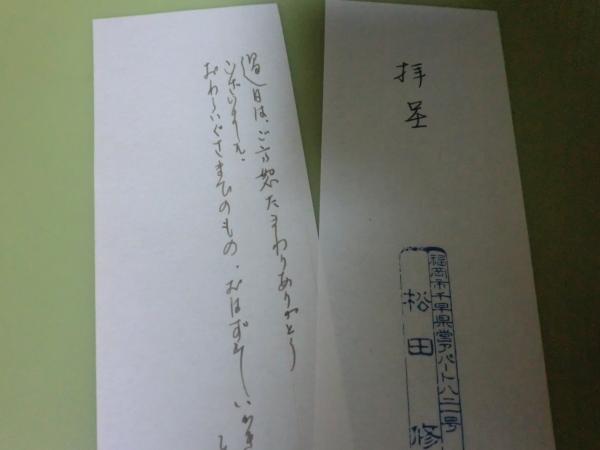 過日は、ご高恕たまわりありがとう
ございました。
おわらいぐさまでのもの、おはずかし
拝呈
福岡市千早県営アパート八二一号
松田修